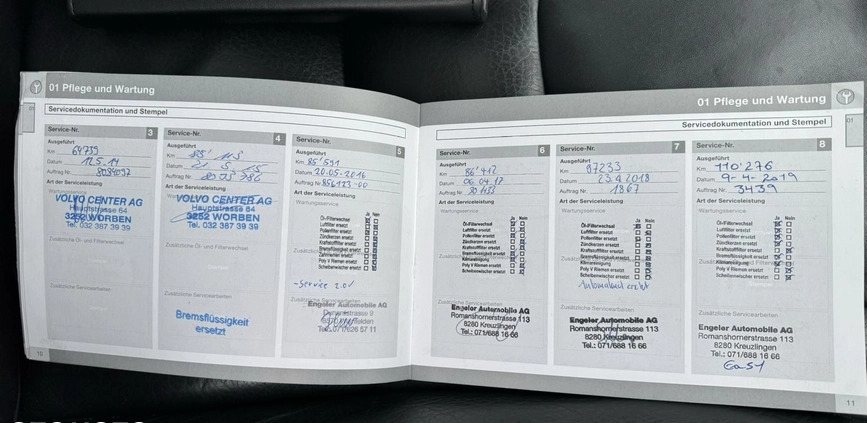 01 Pflege und Wartung
Servicedokumentation und Stempel
Service-Nr. 3
Ausgeführt
Km 64739
Datum 12.5.14
Auftrag Nr.
Art der Serviceleistung
VOLVO CENTER AG
Hauptstrasse 64
3252 WORBEN
Tel. 032 387 39 39
Zusätzliche Öl- und Filterwechsel
Zusätzliche Servicearbeiten
Service-Nr. 4
Ausgeführt
Km
Datum
Auftrag Nr.
Art der Serviceleistung
VOLVO CENTER AG
Hauptstrasse 64
3252 WORBEN
Tel. 032 387 39 39
Zusätzliche Öl- und Filterwechsel
Zusätzliche Servicearbeiten
Bremsflüssigkeit
ersetzt
Service-Nr. 5
Ausgeführt
Km 85'591
Datum 20.05.2016
Auftrag Nr. 856123-00
Art der Serviceleistung
Wartungsservice
Ja Nein
Öl-Filterwechsel
Luftfilter ersetzt
Pollenfilter ersetzt
Zündkerzen ersetzt
Kraftstofffilter ersetzt
Bremsflüssigkeit ersetzt
Zahnriemen ersetzt
Poly V Riemen ersetzt
Scheibenwischer ersetzt
Engeler Automobile AG
01 Pflege und Wartung
Servicedokumentation und Stempel
Service-Nr. 6
Ausgeführt
Km 86'412
Datum 06.04.17
Auftrag Nr.
Art der Serviceleistung
Wartungsservice
Ja Nein
Öl-Filterwechsel
Luftfilter ersetzt
Pollenfilter ersetzt
Zündkerzen ersetzt
Kraftstofffilter ersetzt
Bremsflüssigkeit ersetzt
Klimareinigung
Poly V Riemen ersetzt
Scheibenwischer ersetzt
Zusätzliche Servicearbeiten
Engeler Automobile AG
Romanshornerstrasse 113
8280 Kreuzlingen
Tel.: 071/688 16 66
Service-Nr. 7
Ausgeführt
Km 97233
Datum 23.4.2018
Auftrag Nr. 1867
Art der Serviceleistung
Wartungsservice
Ja Nein
Öl-Filterwechsel
Luftfilter ersetzt
Pollenfilter ersetzt
Zündkerzen ersetzt
Kraftstofffilter ersetzt
Bremsflüssigkeit ersetzt
Klimareinigung
Poly V Riemen ersetzt
Scheibenwischer ersetzt
Zusätzliche Servicearbeiten
Engeler Automobile AG
Romanshornerstrasse 113
8280 Kreuzlingen
Tel.: 071/688 16 66
Service-Nr. 8
Ausgeführt
Km 110'276
Datum 9-4-2019
Auftrag Nr. 3439
Art der Serviceleistung
Wartungsservice
Ja Nein
Öl-Filterwechsel
Luftfilter ersetzt
Pollenfilter ersetzt
Zündkerzen ersetzt
Kraftstofffilter ersetzt
Bremsflüssigkeit ersetzt
Klimareinigung
Poly V Riemen ersetzt
Scheibenwischer ersetzt
Zusätzliche Servicearbeiten
Engeler Automobile AG
Romanshornerstrasse 113
8280 Kreuzlingen
Tel.: 071/688 16 66
10
11